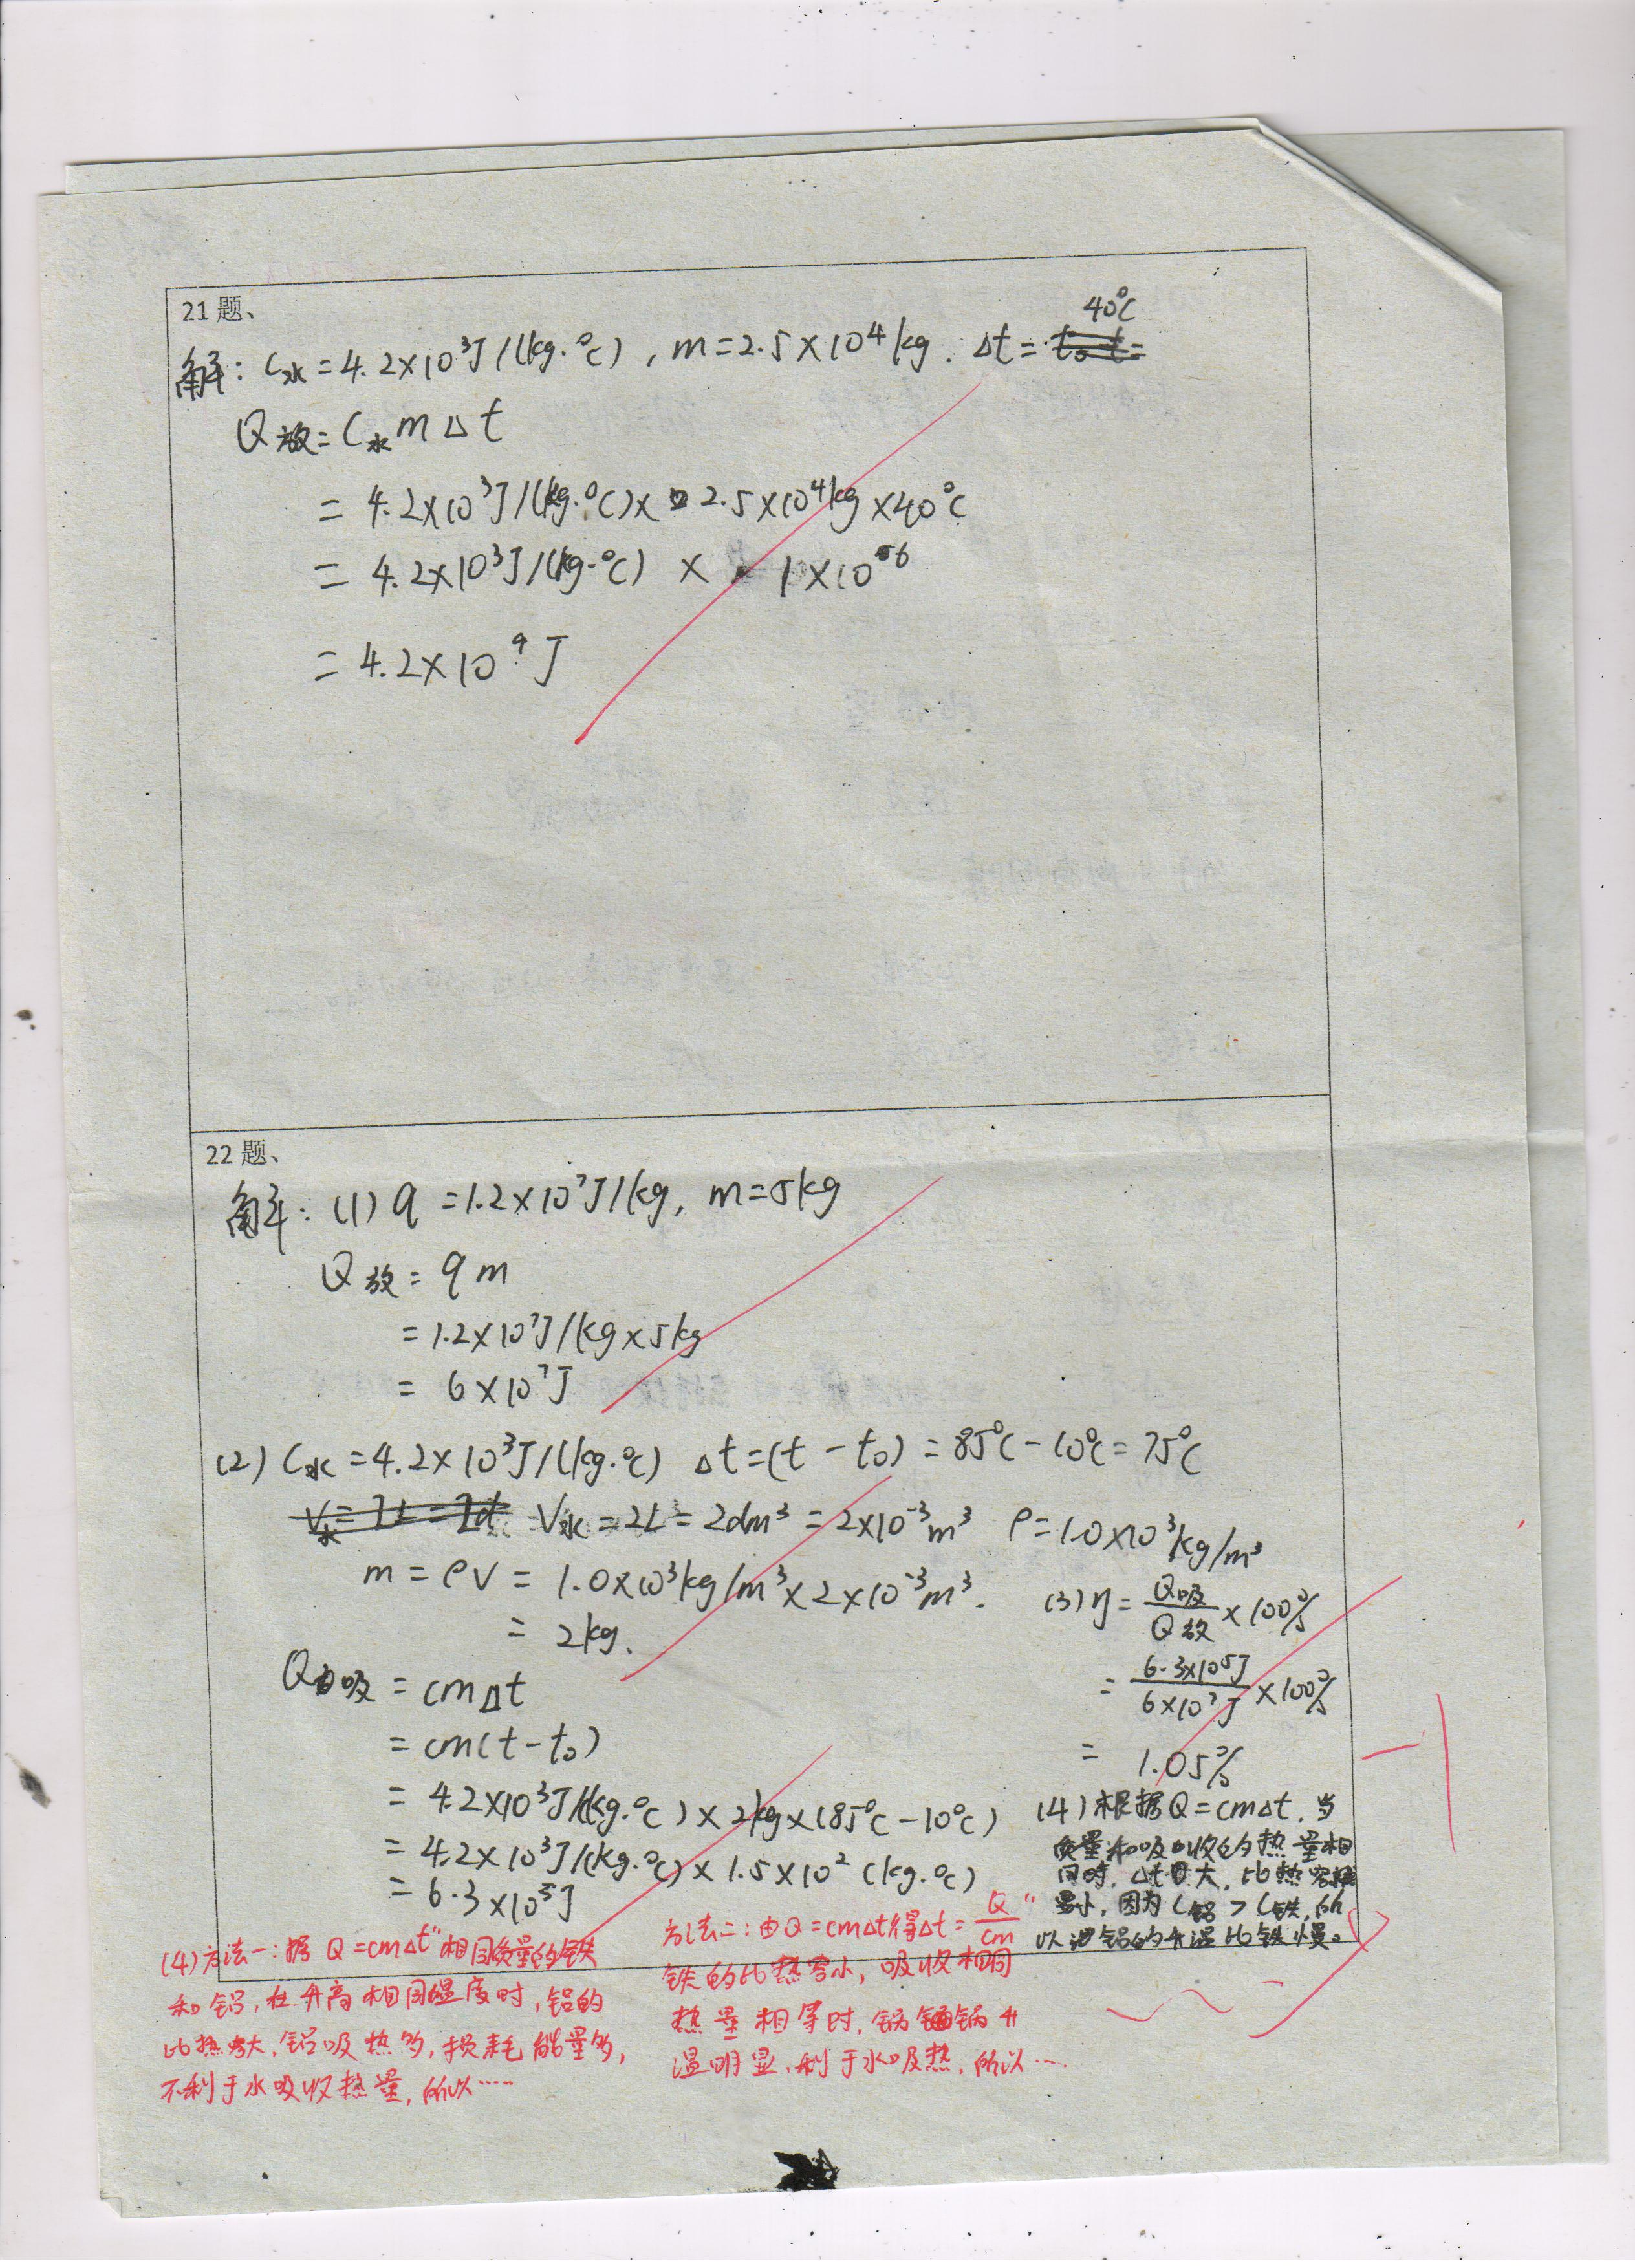 21题、
40℃
解: C水=4.2×10³J/(kg·℃), m=2.5×10⁴kg. Δt=
Q放=C水mΔt
=4.2×10³J/(kg·℃)×2.5×10⁴kg×40℃
=4.2×10³J/(kg·℃)×1×10⁶
=4.2×10⁹J
22题、
解: (1) q=1.2×10⁷J/kg, m=5kg
Q放=qm
=1.2×10⁷J/kg×5kg
=6×10⁷J
(2) C水=4.2×10³J/(kg·℃) Δt=(t-t₀)=85℃-10℃=75℃
V水=2L=2dm³=2×10⁻³m³ ρ=1.0×10³kg/m³
m=ρV=1.0×10³kg/m³×2×10⁻³m³.
=2kg.
Q吸=cmΔt
=cm(t-t₀)
=4.2×10³J/(kg·℃)×2kg×(85℃-10℃)
=4.2×10³J/(kg·℃)×1.5×10²(kg·℃)
=6.3×10⁵J
(3) η=Q吸/Q放×100%
=6.3×10⁵J/6×10⁷J×100%
=1.05%
-1
(4) 根据Q=cmΔt, 当
质量和吸收的热量相
同时, Δt越大, 比热容越
小, 因为C铝>C铁, 所
以铝的升温比铁慢。
(4) 方法一: 据"Q=cmΔt"相同质量的铁
和铝, 在升高相同温度时, 铝的
比热容大, 铝吸热多, 损耗能量多,
不利于水吸收热量, 所以……
方法二: 由Q=cmΔt得Δt=Q/cm"
铁的比热容小, 吸收相同
热量相等时, 锅升
温明显, 利于水吸热, 所以……